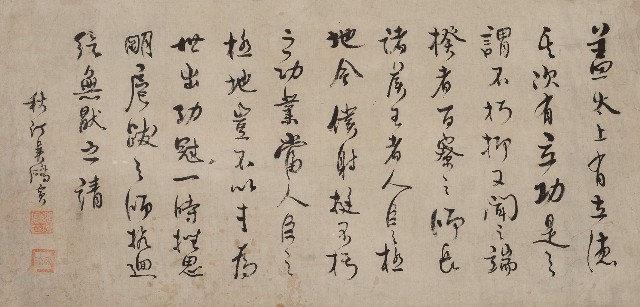 蓋太上有立德
其次有立功是之
謂不朽抑又聞之端
揆者百寮之師長
諸侯王者人臣之極
地今僕射挺不朽
之功業當人臣之
極地豈不以才為
世出功冠一時挫思
明扈跋之師抗迴
紇無厭之請
秋吳鴻